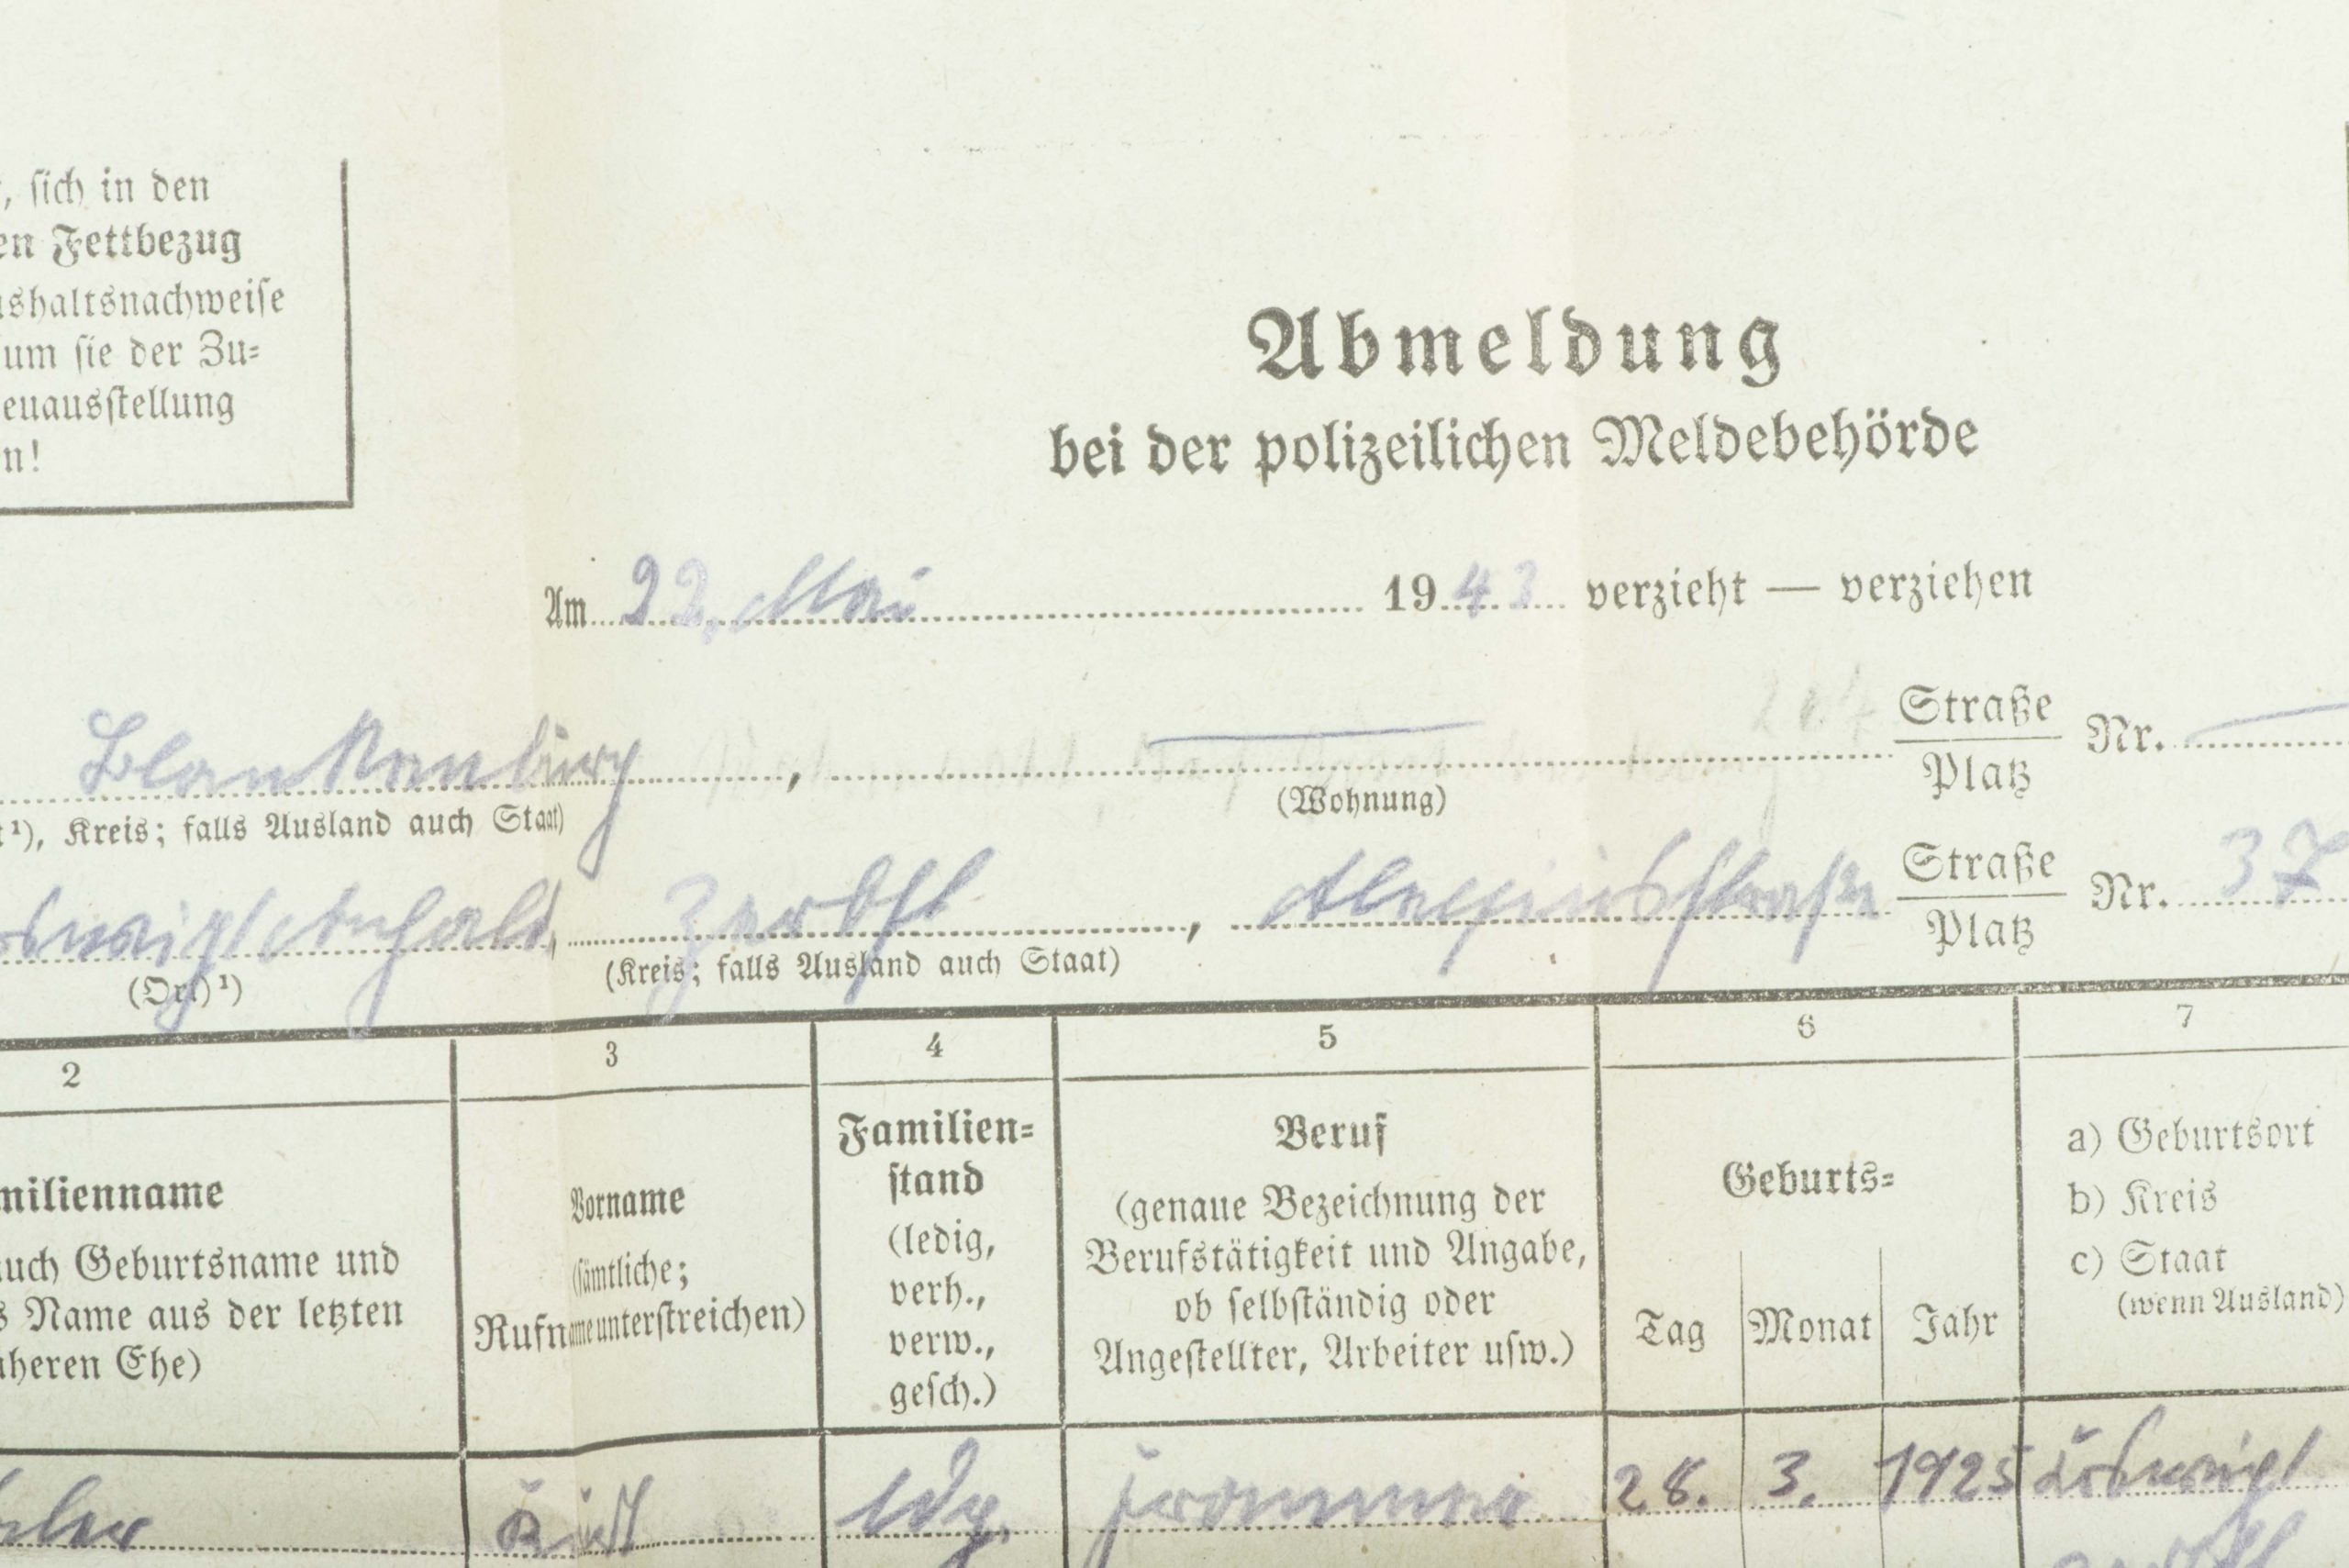 , sich in den
en Fettbezug
shaltsnachweise
um sie der Zu-
euausstellung
n!
Abmeldung
bei der polizeilichen Meldebehörde
Am 22. Mai 1943 verzieht — verziehen
Blankenburg, Straße Platz Nr.
¹), Kreis; falls Ausland auch Staat) (Wohnung)
oswig/Anhalt, Zerbst, Straße Platz Nr. 37
(Ort)¹) (Kreis; falls Ausland auch Staat)
2 3 4 5 6 7
milienname
uch Geburtsname und
s Name aus der letzten
heren Ehe)
Vorname
(sämtliche;
Rufname unterstreichen)
Familien-
stand
(ledig,
verh.,
verw.,
gesch.)
Beruf
(genaue Bezeichnung der
Berufstätigkeit und Angabe,
ob selbständig oder
Angestellter, Arbeiter usw.)
Geburts-
Tag Monat Jahr
a) Geburtsort
b) Kreis
c) Staat
(wenn Ausland)
ldg. 28. 3. 1925 Coswig/